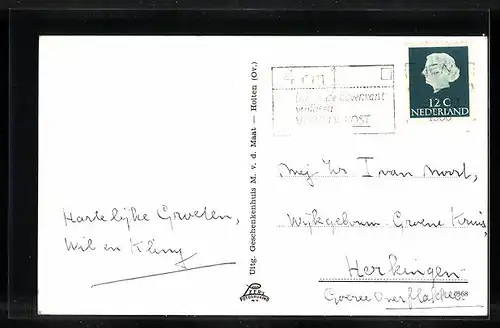 Hartelijke Groeten,
Wil en
Uitg. Geschenkenhuis M. v. d. Maat — Holten (Ov.)
4 m
verloren
POST
12 C
NEDERLAND
Mej I van Noort,
Wijkgebouw Groene Kruis,
Herkingen
Goeree Overflakkee